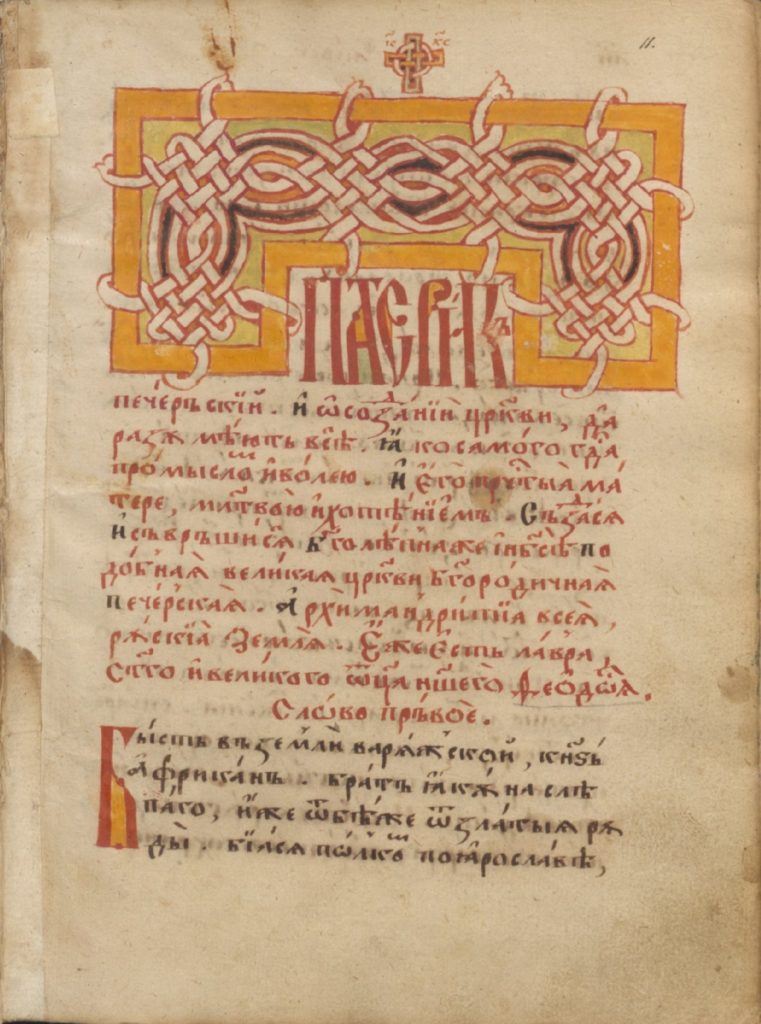 11.
ІС ХС
ПАТЕРИ́КЪ
пече́рьскїй. и҆ ѡ҆ созда́нїи цр҃кви, да
разꙋмѣ́ють всѝ. ꙗ҆́ко самого̀ гдⷭ҇а
про́мысломъ и҆ во́лею. и҆ є҆гѡ̀ прчⷭ҇тыѧ ма́
тере, мл҃твою и҆ хотѣ́нїемъ. Създа́сѧ
и҆ съврьши́сѧ
до́бнаѧ вели́каѧ цр҃кви бг҃оро́дичнаѧ
пече́рскаѧ. А҆рхимандри́тїа всеѧ̀,
рꙋ́скїѧ землѧ̀. Є҆́же є҆́сть ла́вра,
ст҃го и҆ вели́кого ѿц҃а на́шего Ѳео́дѡсїѧ.
Сло́во пръ́вое.
Бы́сть въ землѝ варѧ́жской, кнѧ́зь
а҆фрика́нъ. бра́тъ ꙗ҆кꙋ́на слѣ
па́го, и҆́же ѿбѣжѐ ѿ златы́ѧ рꙋ
ды̀. бїа́сѧ полко́мъ по ꙗ҆росла́вѣ,